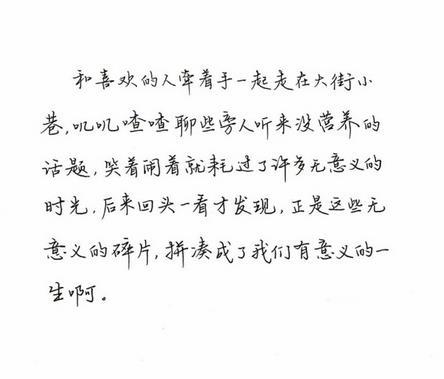 和喜欢的人牵着手一起走在大街小
巷,叽叽喳喳聊些旁人听来没营养的
话题,笑着闹着就耗过了许多无意义的
时光,后来回头一看才发现,正是这些无
意义的碎片,拼凑成了我们有意义的一
生啊。